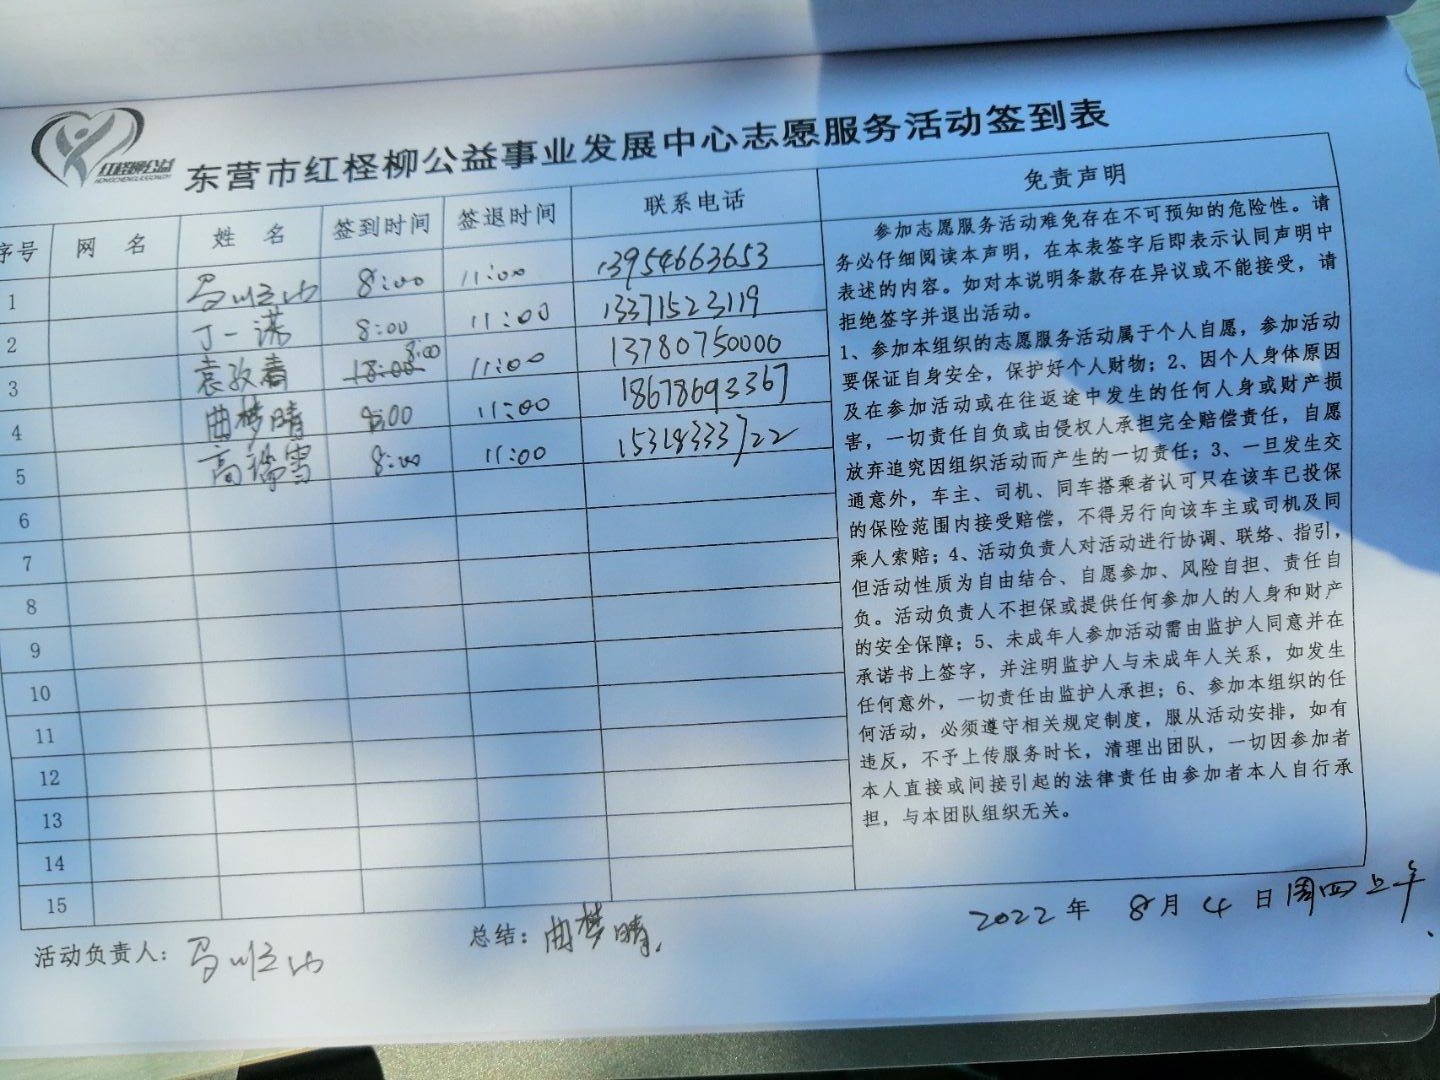 红柽柳公益
东营市红柽柳公益事业发展中心志愿服务活动签到表
序号 网 名 姓 名 签到时间 签退时间 联系电话 免责声明
1 8:00 11:00 13954663653
2 丁一诺 8:00 11:00 13371523119
3 袁孜春 18:00 8:00 11:00 13780750000
4 曲梦晴 8:00 11:00 18678693367
5 高瑞雪 8:00 11:00 15318333722
6
7
8
9
10
11
12
13
14
15
参加志愿服务活动难免存在不可预知的危险性。请
务必仔细阅读本声明，在本表签字后即表示认同声明中
表述的内容。如对本说明条款存在异议或不能接受，请
拒绝签字并退出活动。
1、参加本组织的志愿服务活动属于个人自愿，参加活动
要保证自身安全，保护好个人财物；2、因个人身体原因
及在参加活动或在往返途中发生的任何人身或财产损
害，一切责任自负或由侵权人承担完全赔偿责任，自愿
放弃追究因组织活动而产生的一切责任；3、一旦发生交
通意外，车主、司机、同车搭乘者认可只在该车已投保
的保险范围内接受赔偿，不得另行向该车主或司机及同
乘人索赔；4、活动负责人对活动进行协调、联络、指引，
但活动性质为自由结合、自愿参加、风险自担、责任自
负。活动负责人不担保或提供任何参加人的人身和财产
的安全保障；5、未成年人参加活动需由监护人同意并在
承诺书上签字，并注明监护人与未成年人关系，如发生
任何意外，一切责任由监护人承担；6、参加本组织的任
何活动，必须遵守相关规定制度，服从活动安排，如有
违反，不予上传服务时长，清理出团队，一切因参加者
本人直接或间接引起的法律责任由参加者本人自行承
担，与本团队组织无关。
活动负责人： 总结：曲梦晴. 2022年 8月 4日周四上午.